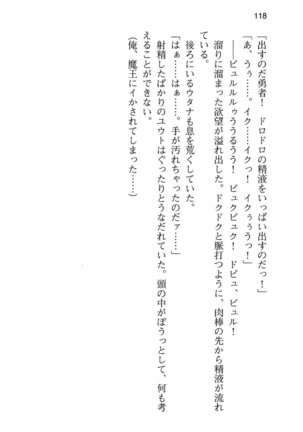 118
「出すのだ勇者！　ドロドロの精液をいっぱい出すのだっ！」
「あ、うぅ……。イク……イクっ！　イクぅぅうっ！」
――ビュルルルゥうううるうう！　ビュクビュク！　ドビュ、ビュル！
溜りに溜まった欲望が溢れ出した。ドクドクと脈打つように、肉棒の先から精液が流れ
ている。
後ろにいるウタナも息を荒くしていた。
「はぁ……はぁ……。手が汚れちゃったのだァ……」
射精したばかりのユウトはぐったりとうなだれていた。頭の中がぼうっとして、何も考
えることができない。
（俺、魔王にイかされてしまった……）